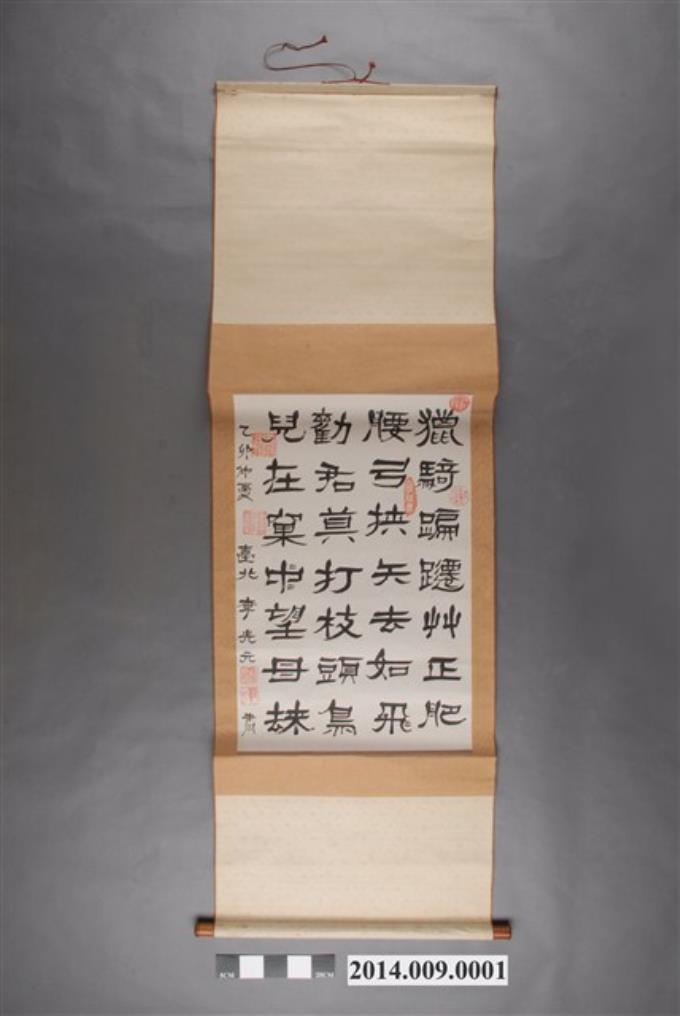 獵騎蹁躚艸正肥
腰弓挾矢去如飛
勸君莫打枝頭鳥
兒在窠中望母歸
乙卯仲夏 臺北 李光元書
5CM
20CM
2014.009.0001